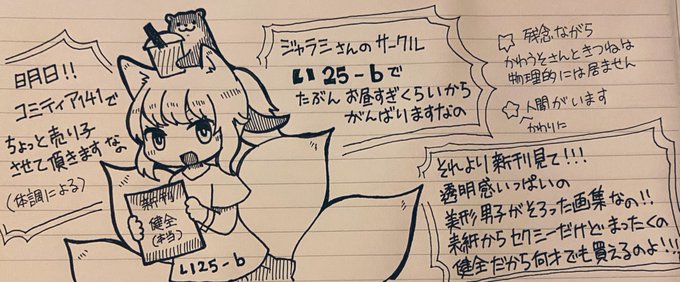 明日!!
コミティア141で
ちょっと売り子
させて頂きますな
(体調による)
ジャラシさんのサークル
い25-bで
たぶんお昼すぎくらいから
がんばりますなの
☆残念ながら
かわうそさんときつねは
物理的には居ません
☆人間がいます
かわりに
それより新刊見て!!!
透明感いっぱいの
美形男子がそろった画集なの!!
表紙からセクシーだけどまったくの
健全だから何才でも買えるのよ!!!
新刊
健全
(本当)
い25-b